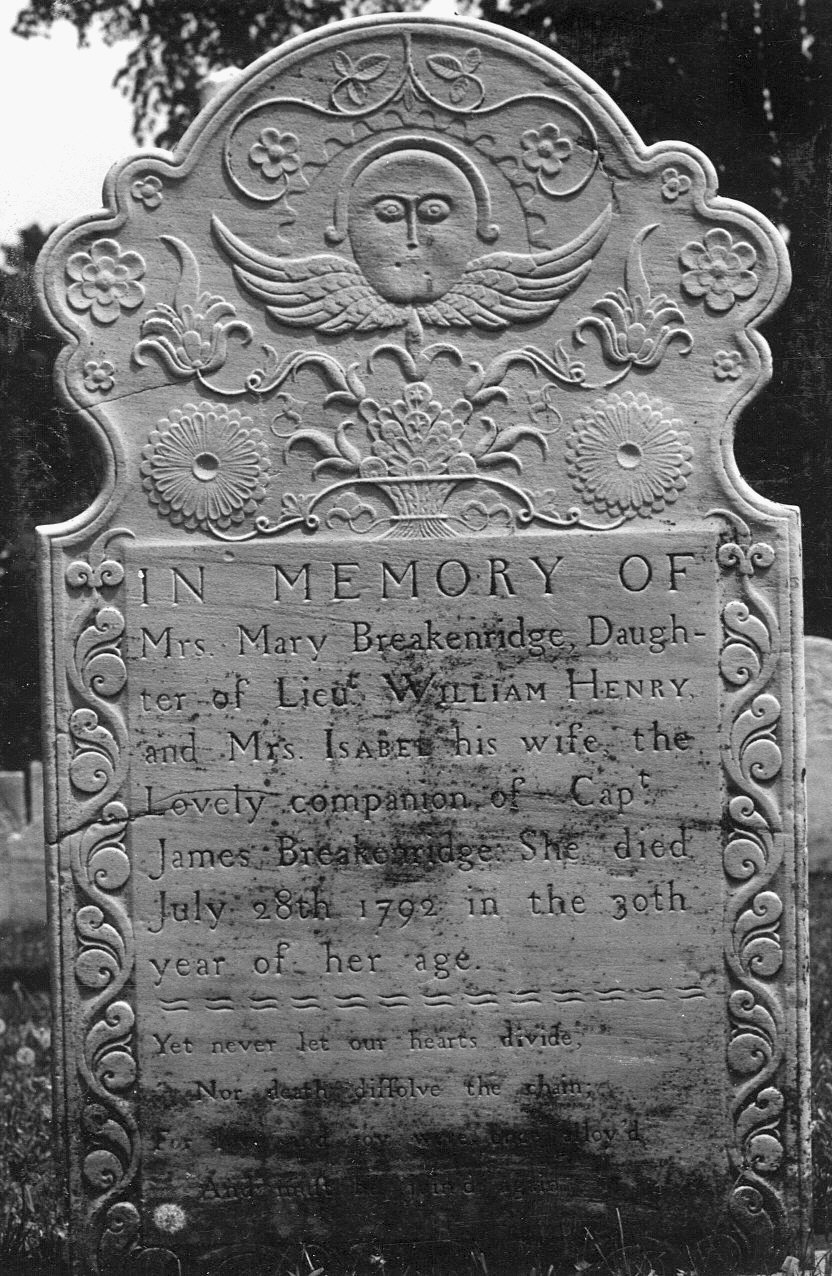 IN MEMORY OF
Mrs. Mary Breakenridge, Daugh-
ter of Lieut. WILLIAM HENRY,
and Mrs. ISABEL his wife, the
Lovely companion of Capt.
James Breakenridge She died
July 28th 1792 in the 30th
year of her age.
Yet never let our hearts divide,
Nor death diſſolve the chain,
For and joy were once alloy'd
And muſt be join'd again.